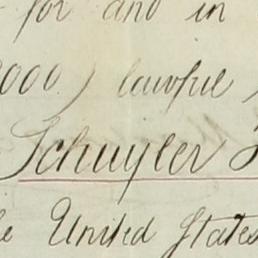 for and in
000) lawful
Schuyler
the United States